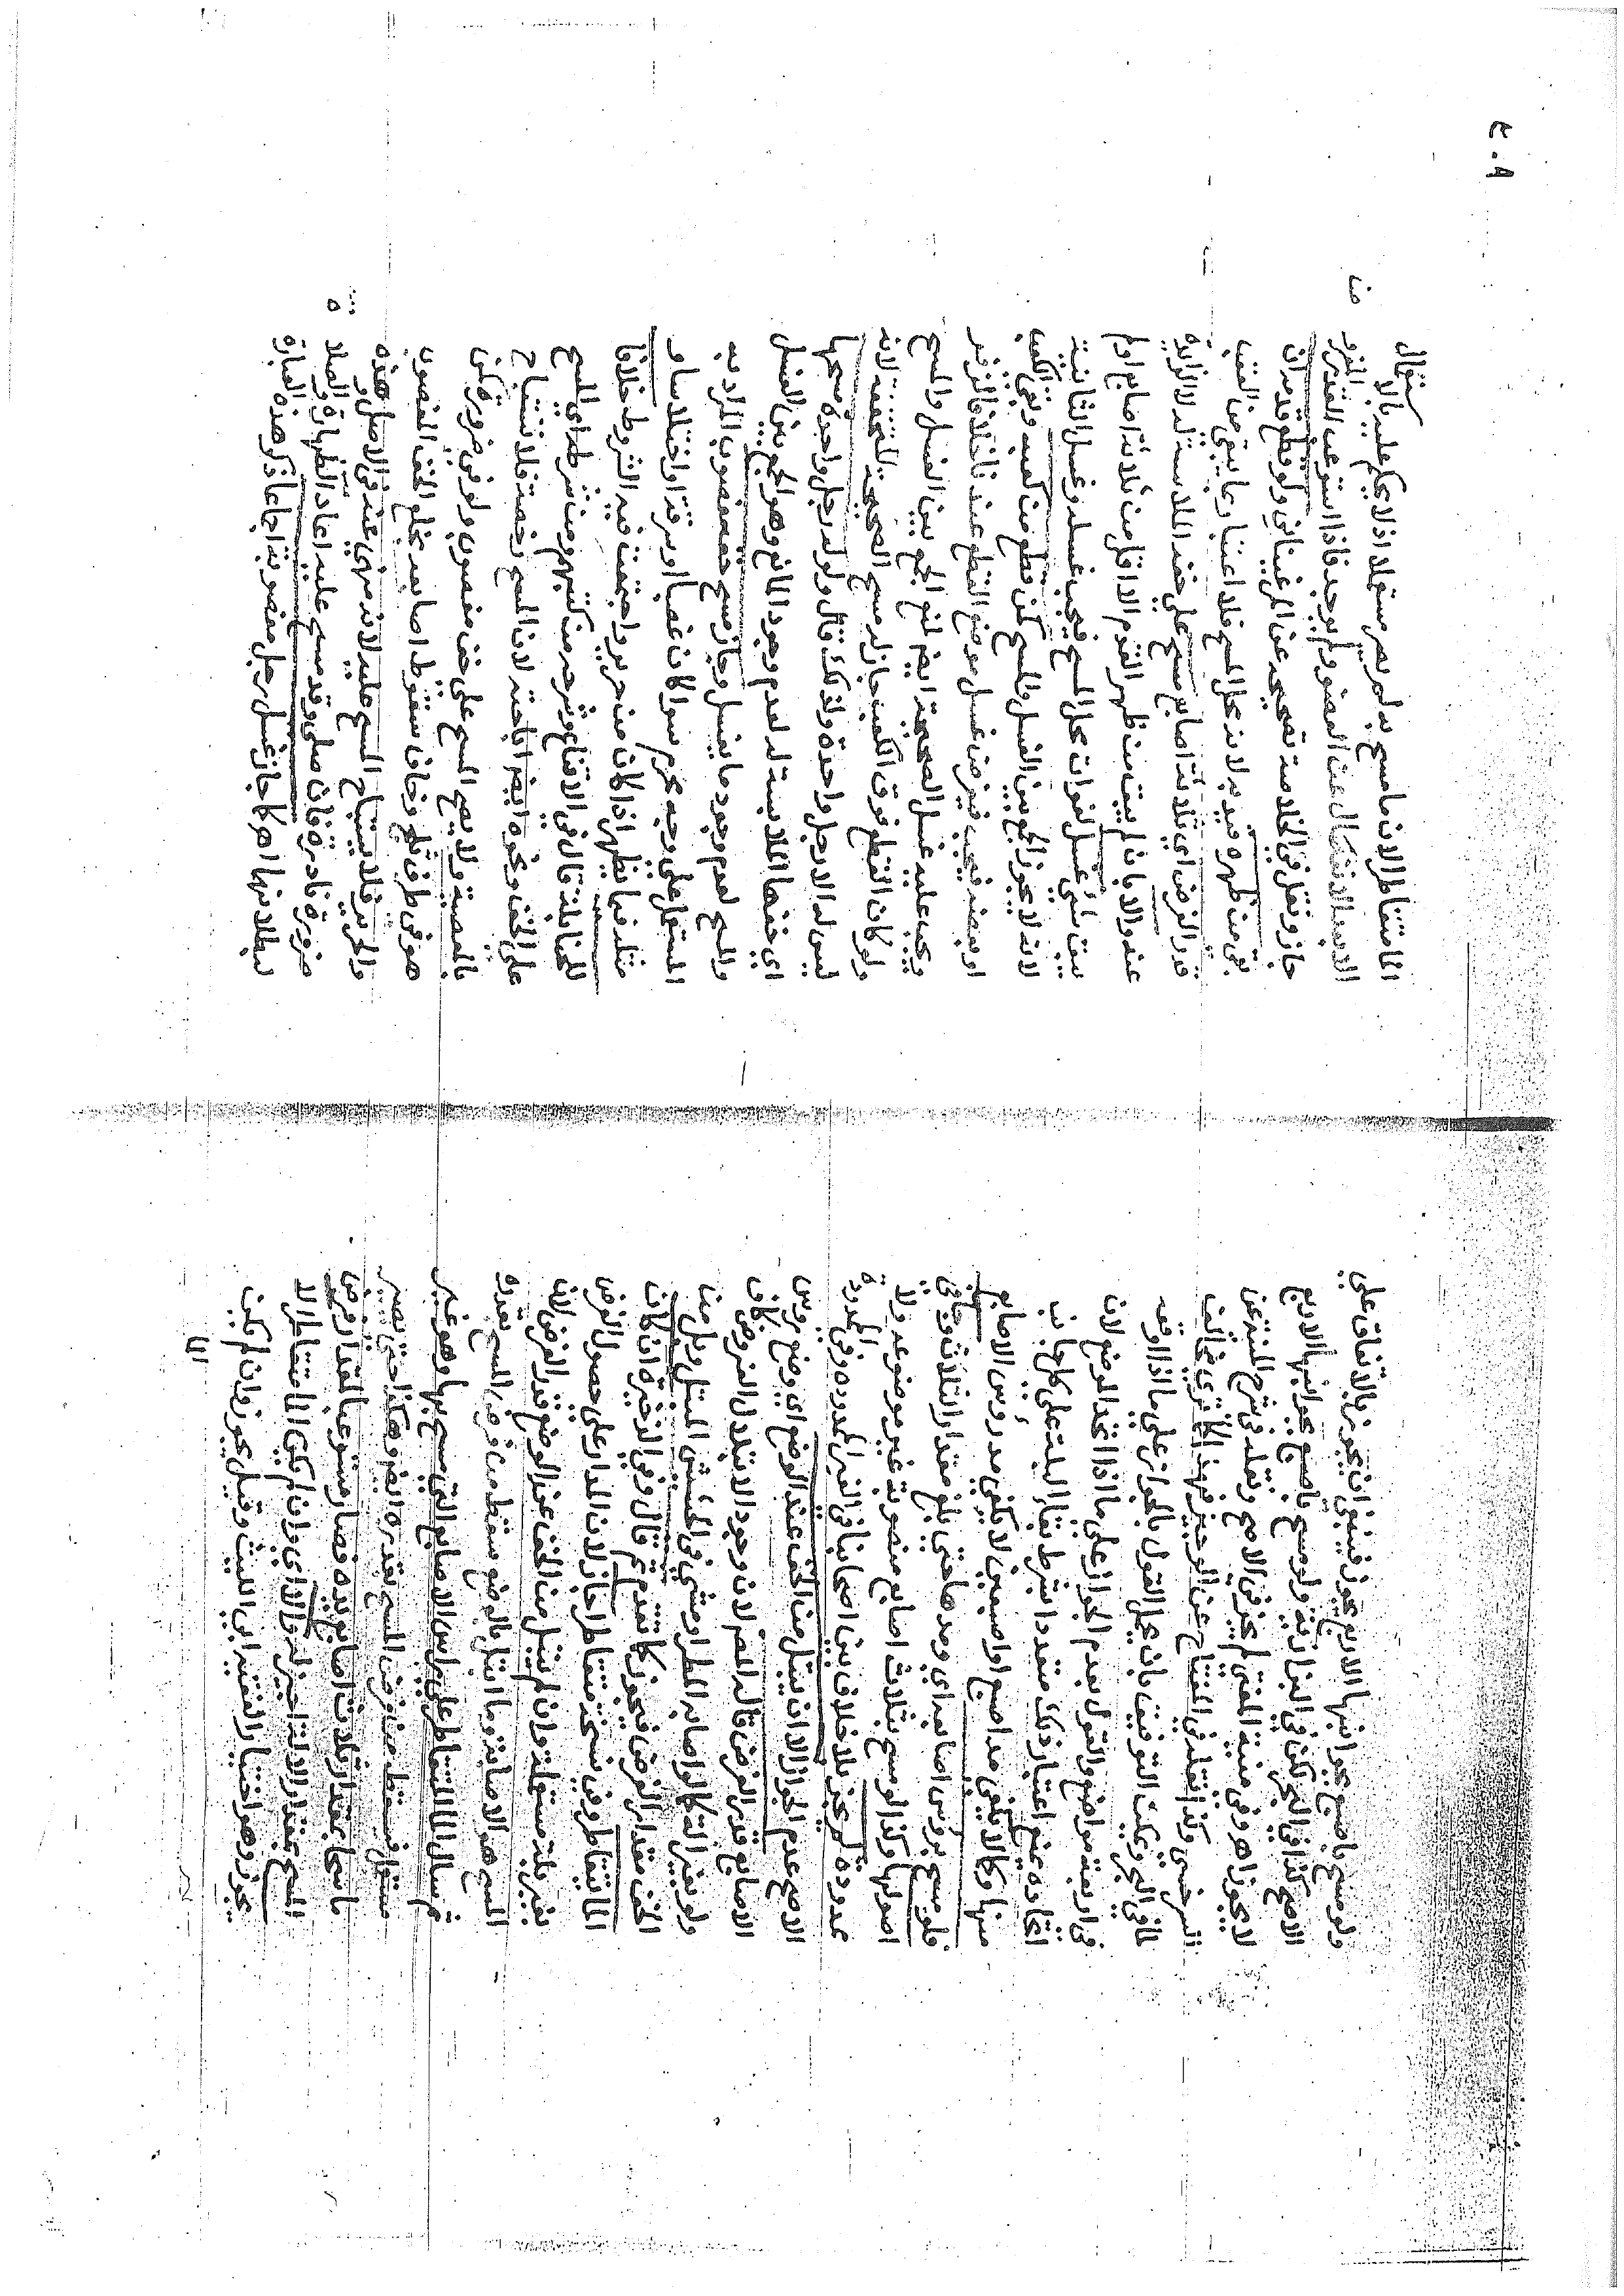 ولو مسح باصبع بجوانبها الاربع يجوز فينبغي ان يجوز بالاتفاق على
الاصح كذا في البحر لكن في البزازية ولو مسح باصبع بجوانبها الاربع
لا يجوز اهـ وفي منية المفتي لم يجز في الاصح ونقله في شرح المنية عن
السرخسي وكذا نقله في المفتاح عن الوجيز فهذا كما ترى مخالف
لما في البحر ويمكن التوفيق بان يحمل القول بالجواز على ما اذا وقعت
في اربعة مواضع والقول بعدم الجواز على ما اذا اتحد الموضع لان
اتحاده يمنع اعتبار ذلك متعددا بشرط بقاء البلة على كل جانب
منها وكما لا يكفي مد اصبع او اصبعين لا يكفي مد رؤس الاصابع
فلو مسح برؤس اصابعه اي ومدها حتى بلغ مقدار الثلاث وجافى
اصولها وكذا لو مسح بثلاث اصابع منصوبة غير موضوعة ولا
ممدودة لم يجز بلا خلاف بين اصحابنا في الغير الممدودة وفي الممدودة
الاصح عدم الجواز الا ان يبتل من الخف عند الوضع اي وضع رؤس
الاصابع قدر الفرض قاله المص لان وجود الابتلال المفروض كاف
ولو بغير الة كما لو اصابه المطر او مشى في الحشيش المبتل وابتل من
الخف مقدار الفرض فيجوز كما تقدم ثم قال وفي الذخيرة ان كان
الماء يتقاطر وفي نسخة متقاطرا جاز لان المدار على حصول الفرض
بغير بلة مستعملة وان لم يبتل من الخف عند الوضع قدر الفرض لان
المسح هو الاصابة وما ابتل بالوضع سقط من فرض المسح بقدره
ثم سال الماء المتقاطر على راس الاصابع التي مسح بها وهو غير
مستعمل فسقط من فرض المسح بقدره ايضا وهكذا حتى يصير
ماسحا بمقدار ثلاث اصابع يده فصار مستوعبا لمقدار فرض
المسح والا اي وان لم يكن الماء متقاطرا لا
يجوز وهو اختيار الفقيه ابي الليث وقيل يجوز وان لم يكن
الماء
٤٠٩
الماء متقاطرا لان ما مسح به لم يصر مستعملا اذ لا يحكم عليه بالاستعمال
الا بعد الانفصال عن العضو ولم يوجد فاذا استوعب القدر المفروض
جاز ونقل في الخلاصة تصحيحه عن المرغيناني ولو قطع قدمه ان
بقي من ظهره قيد به لانه محل المسح فلا اعتبار بما يبقى من العقب
قدر الفرض اي ثلاثة اصابع مسح على خفه الملابسة له لا الزايدة
عنه والا بان لم يبق من ظهر القدم الا اقل من ثلاثة اصابع او لم
يبق شئ غسل لفوات محل المسح فيجب غسله وغسل الثانية
لانه لا يجوز الجمع بين الغسل والمسح كمن قطع من كعبه وبقي الكعب
او بعضه فيجب فيفرض غسل موضع القطع عندنا خلافا لزفر
ويجب عليه غسل الصحيحة ايضا لمنع الجمع بين الغسل والمسح
ولو كان القطع فوق الكعب جاز له مسح الصحيحة المتخففة لانه
ليس له الا رجل واحدة ولذلك قال ولو له رجل واحدة مسحها
اي خفها الملابسة له لعدم وجود المانع وهو الجمع بين الغسل
والمسح لعدم وجود ما يغسل وجاز مسح خف مغصوب المراد به
المستعمل على وجه محرم سوا كان غصبا او سرقة او اختلاسا و
مثله فيما يظهر اذا كان من حرير واجتمعت فيه الشروط خلافا
للحنابلة قال في الاقناع وشرحه من كتبهم ومن شرطه اي المسح
على الخف ونحوه ايضا اباحته لان المسح رخصة فلا تستباح
بالمعصية ولا يصح المسح على خف مغصوب ولو في ضرورة كمن
هو في طرف ثلج وخاف سقوط اصابعه بخلع الخف المغصوب
والحرير فلا يستباح المسح عليه لانه منهي عنه في الاصل وهذه
ضرورة نادرة فان صلى وقد مسح عليه اعاد الطهارة والصلاة
لبطلانهما اهـ كما جاز غسل رجل مغصوبة اجماعا ذكر هذه العبارة